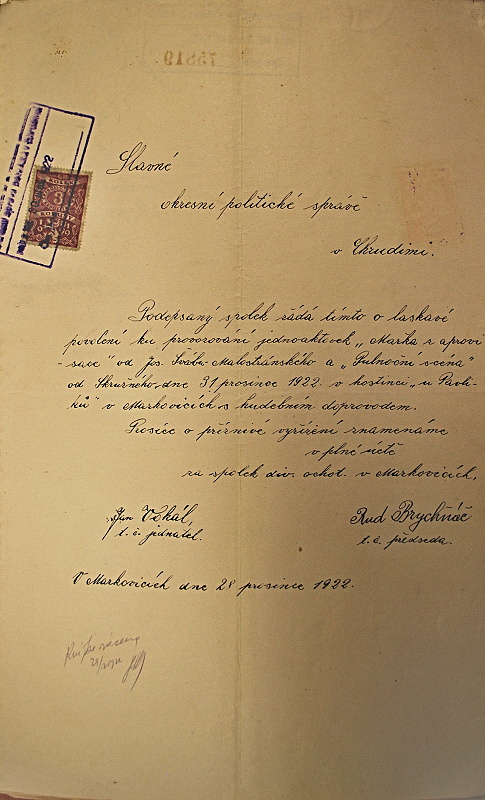 75819
KOLEK
3
KORUNY
Slavné
okresní politické správě
v Chrudimi.
Podepsaný spolek žádá tímto o laskavé
povolení ku provozování jednoaktovek „Marka z aprovi
-sace" od Jos. Švába-Malostránského a „Půlnoční scéna"
od Skružného dne 31 prosince 1922. v hostinci „u Pavli-
ků" v Markovicích s hudebním doprovodem.
Prosíce o příznivé vyřízení znamenáme
v plné úctě
za spolek div. ochot. v Markovicích,
Jan Vokál,
t. č. jednatel.
Rud Brychňáč
t. č. předseda.
V Markovicích dne 28 prosince 1922.